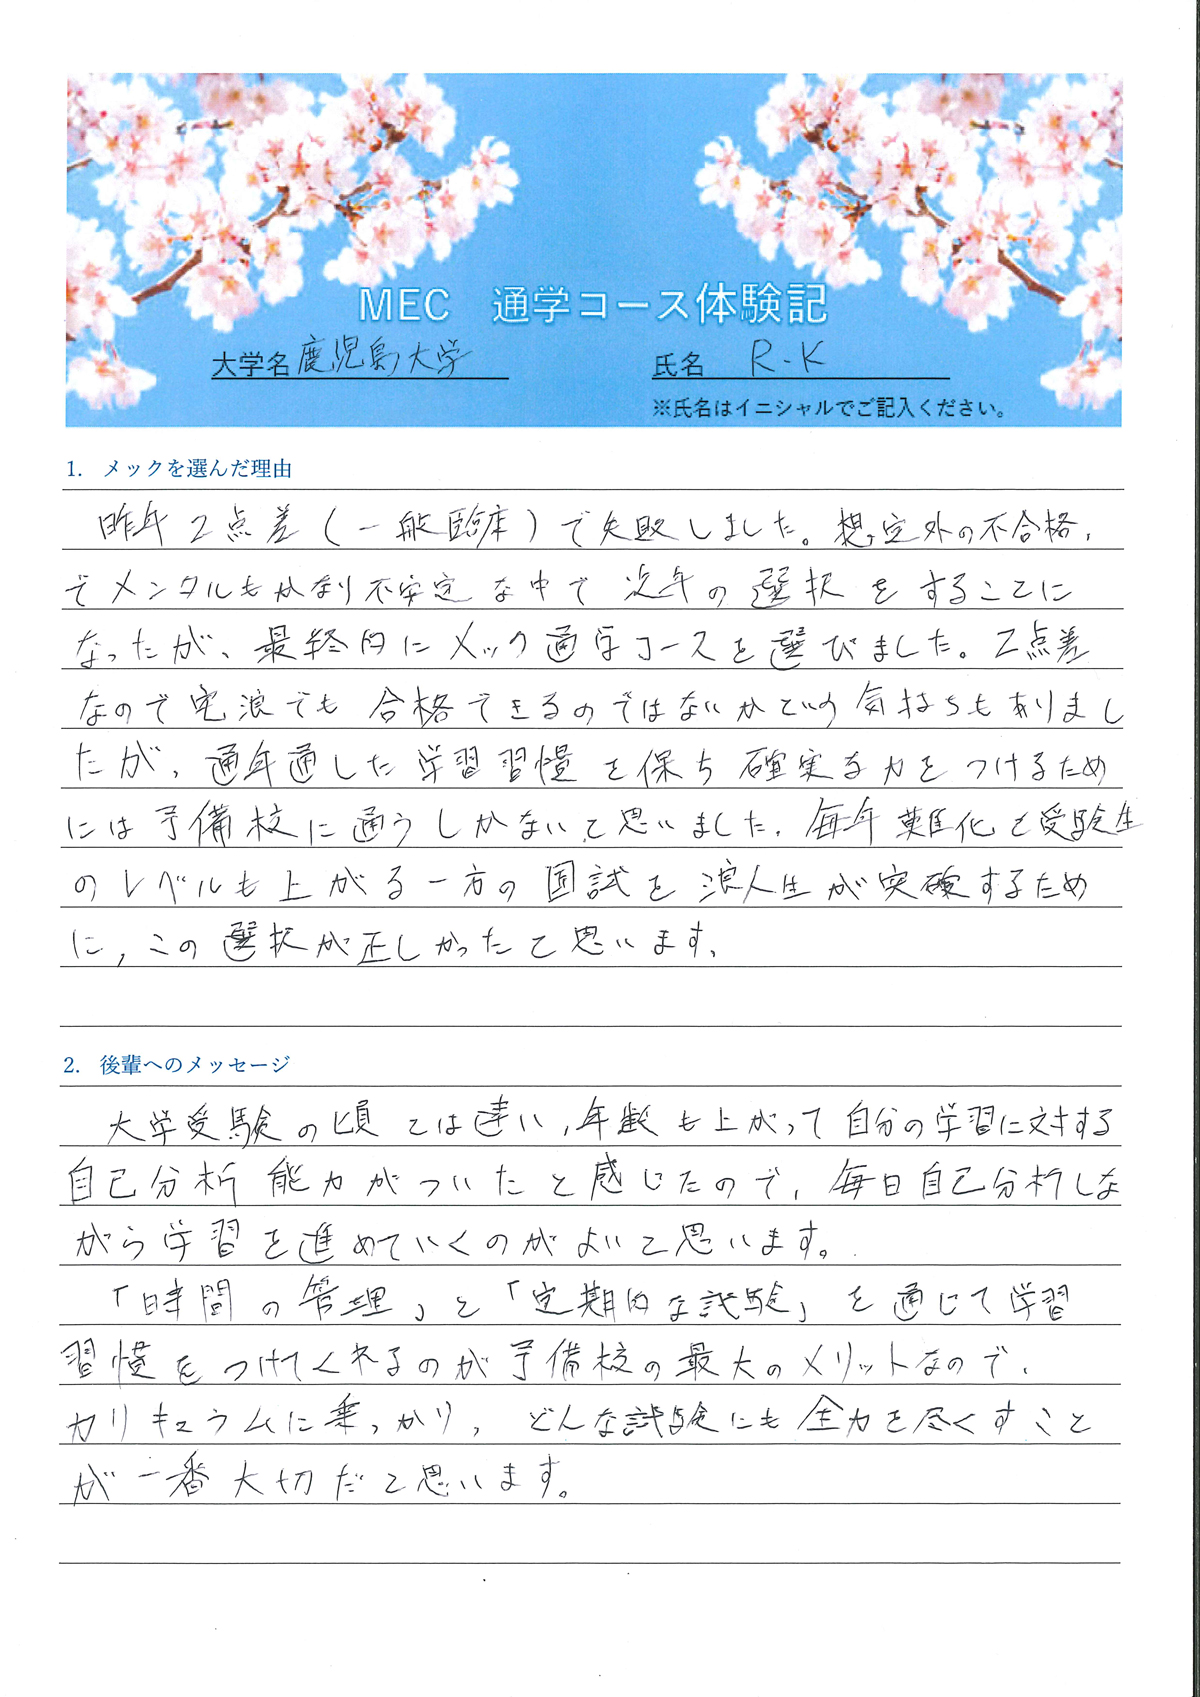 MEC 通学コース体験記
大学名 鹿児島大学 氏名 R-K
※氏名はイニシャルでご記入ください。
1. メックを選んだ理由
昨年2点差(一般臨床)で失敗しました。想定外の不合格、
でメンタルもかなり不安定な中で次年の選択をすることに
なったが、最終的にメック通学コースを選びました。2点差
なので宅浪でも合格できるのではないかという気持ちもありまし
たが、通年通した学習習慣を保ち確実な力をつけるため
には予備校に通うしかないと思いました。毎年難化と受験生
のレベルも上がる一方の国試を浪人生が突破するため
に,この選択が正しかったと思います。
2. 後輩へのメッセージ
大学受験の頃とは違い,年齢も上がって自分の学習に対する
自己分析能力がついたと感じたので、毎日自己分析しな
がら学習を進めていくのがよいと思います。
「時間の管理」と「定期的な試験」を通じて学習
習慣をつけてくれるのが予備校の最大のメリットなので、
カリキュラムに乗っかり,どんな試験にも全力を尽くすこと
が一番大切だと思います。